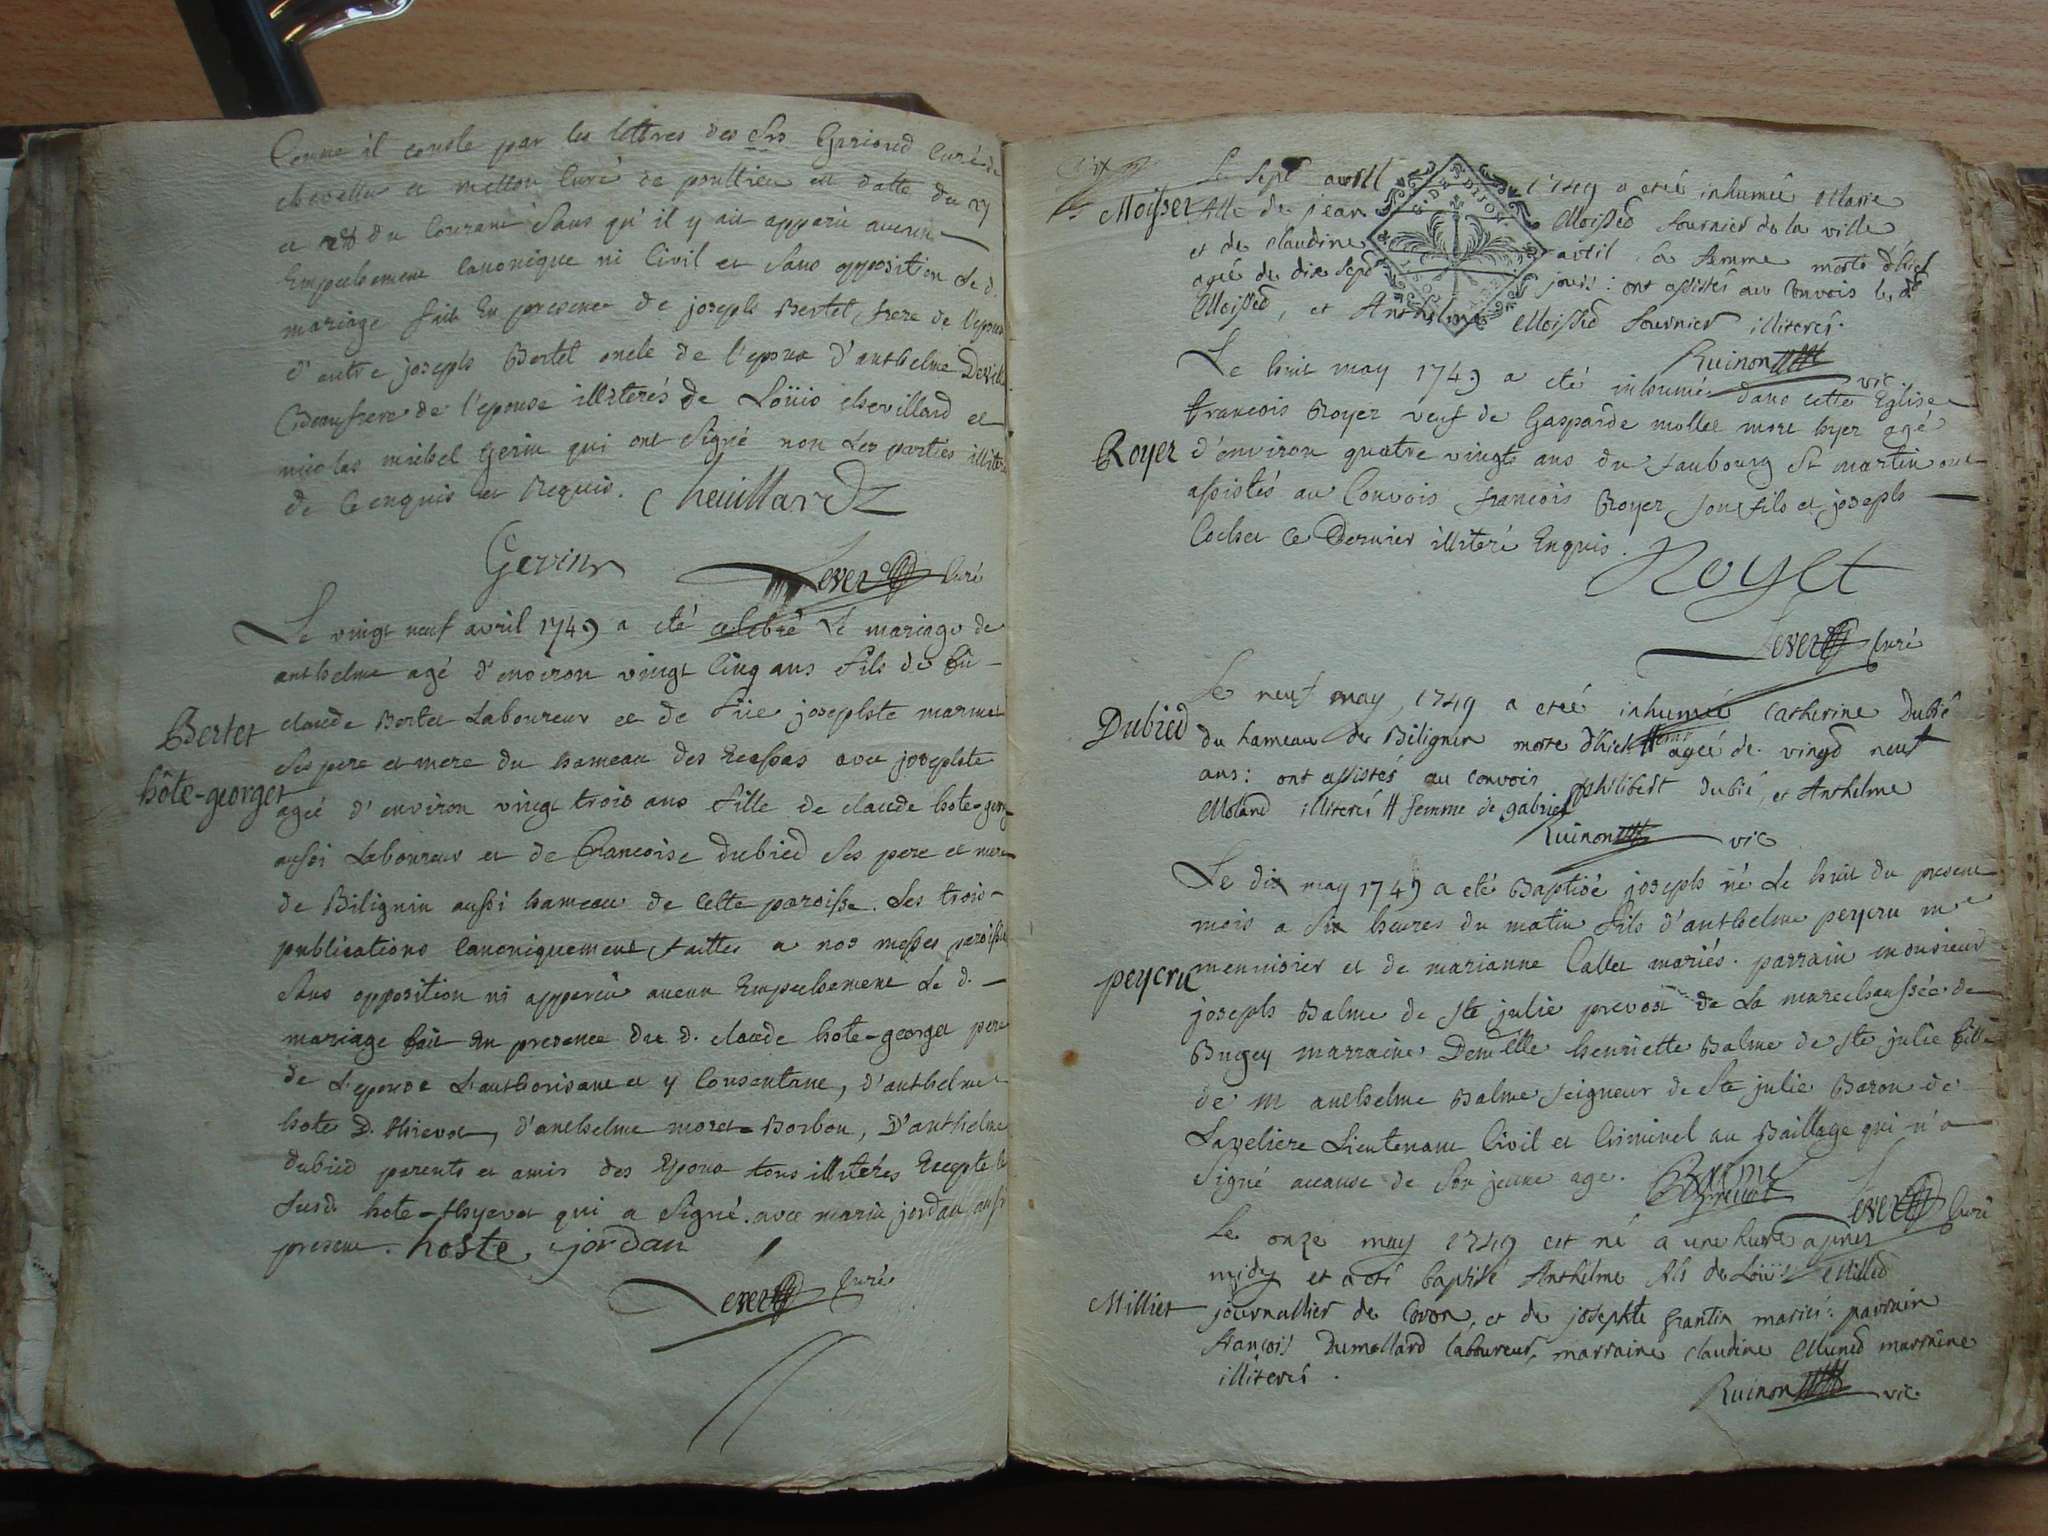 Comme il conste par les lettres des Srs Curé de
chevellu et mellon Curé de poultieu en datte du
et du Courant Sans qu'il y ait apperçu aucun
Empechement Canonique ni Civil et Sans opposition Le d.
mariage fait En presence de joseph Bertet frere de l'epoux
d'autre joseph Bertet oncle de l'epoux d'anthelme
Beaufrere de l'epouse illiterés de Loüis chevillard et
nicolas michel Gerin qui ont Signé non Les parties illiterés
de Ce enquis et Requis. Cheuillard
Gerin
Lever Curé
Le vingt neuf avril 1749 a eté celebré Le mariage de
anthelme agé d'environ vingt Cinq ans fils de
Bertet
claude Bertet Laboureur et de josephte marmet
Ses pere et mere du hameau des Ecassas avec josephte
hôte-georget
agée d'environ vingt trois ans fille de claude hote-georget
aussi Laboureur et de Francoise dubied Ses pere et mere
de Bilignin aussi hameau de Cette paroisse. Les trois
publications Canoniquement faittes a nos messes paroiss
Sans opposition ni apperçu aucun Empechement Le d.
mariage fait En presence du d. claude hote-georget pere
de L'epouse L'authorisant et y Consentant, d'anthelme
hote d. thievot, d'anthelme moret Borbon, D'anthelme
dubied parents et amis des Epoux tous illiterés Excepté le
Susd. hote-thyevot qui a Signé. avec marin jordan aussi
present. hoste jordan
Lever Curé
Le sept avril 1749 a eté inhumée Marie
Moisset
fille de jean Moissed fournier de la ville
et de claudine avril sa femme morte d'hier
ageé de dix sept jours: ont assistés au Convois le dt
Moissed, et Anthelme Moissed fournier illiterés.
Ruinon
vic.
Le huit may 1749 a eté inhumé dans cette Eglise
francois Royer veuf de Gasparde mollet mort hyer agé
Royer
d'environ quatre vingts ans du faubourg St martin ont
assistés au Convois francois Royer son fils et joseph
Cochet Ce Dernier illiteré Enquis. Royet
Lever Curé
Le neuf may 1749 a eté inhumée Catherine Dubié
Dubied
du hameau de Bilignin morte d'hier # ageé de vingd neuf
ans: ont assistés au convois philibert dubié, et Anthelme
Moland illiterés # femme de gabriel
Ruinon vic
Le dix may 1749 a eté Baptisé joseph né Le huit du present
mois a Six heures du matin fils d'anthelme peycru me
peycru
mennisier et de marianne Callet mariés. parrain monsieur
joseph Balme de Ste julie prevost de La marechaussée de
Bugey marraine Demelle henriette Balme de Ste julie fille
de m anthelme Balme Seigneur de Ste julie Baron de
Laveliere Lieutenant Civil et Criminel au Baillage qui n'a
Signé accause de Son jeune age. Balme
Lever Curé
Le onze may 1749 est né a une hure apres
midy et a eté baptisé Anthelme fils de Loüis Milled
Milliet
journallier de Coron, et de josephte frantin mariés: parrain
françois Dumollard laboureur, marraine claudine Muned marraine
illiterés.
Ruinon vic.